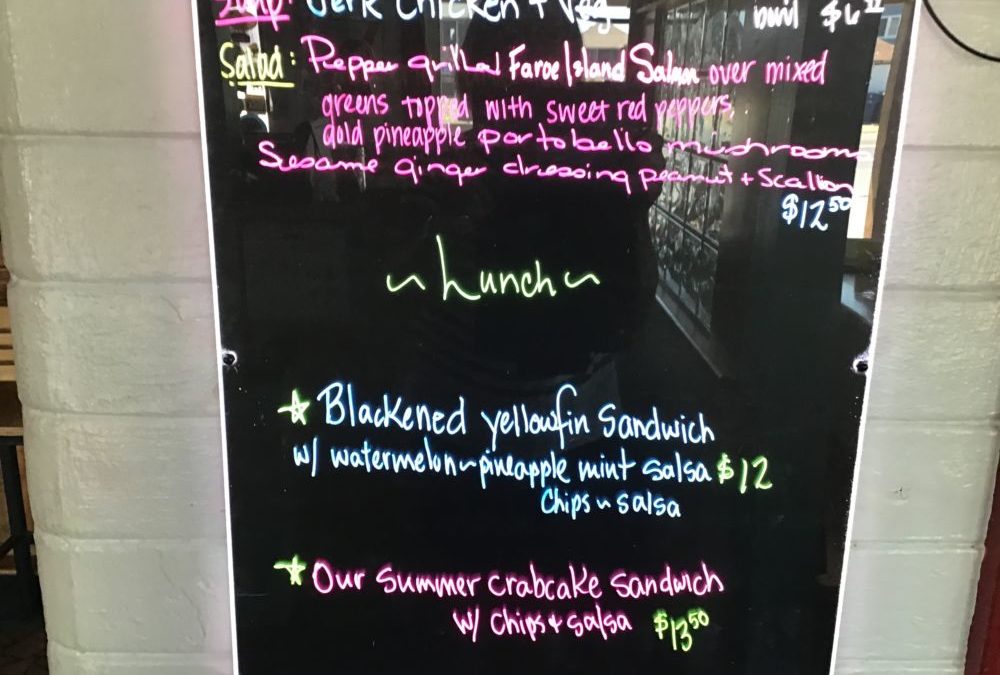 Soup: Jerk Chicken + Veg bowl $6
Salad: Pepper grilled Faroe Island Salmon over mixed
greens topped with sweet red peppers,
gold pineapple portobello mushrooms
Sesame ginger dressing peanut + Scallion
$12.50
~ Lunch ~
☆ Blackened yellowfin Sandwich
w/ watermelon~pineapple mint salsa $12
Chips ~ salsa
☆ Our Summer Crabcake Sandwich
w/ Chips + salsa $13.50